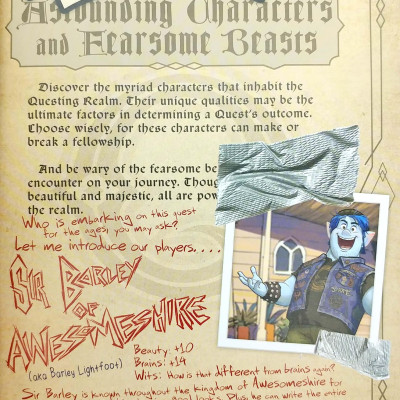 Astounding Characters
and Fearsome Beasts
Discover the myriad characters that inhabit the
Questing Realm. Their unique qualities may be the
ultimate factors in determining a Quest's outcome.
Choose wisely, for these characters can make or
break a fellowship.
And be wary of the fearsome be
encounter on your journey. Thoug
beautiful and majestic, all are pow
the realm.
Who is embarking on this quest
for the ages, you may ask?
Let me introduce our players....
Sir Barley
of
Awesomeshire
(aka Barley Lightfoot)
Beauty: +10
Brains: +14
Wits: How is that different from brains again?
Sir Barley is known throughout the kingdom of Awesomeshire for
good looks. Plus, he can write the entire